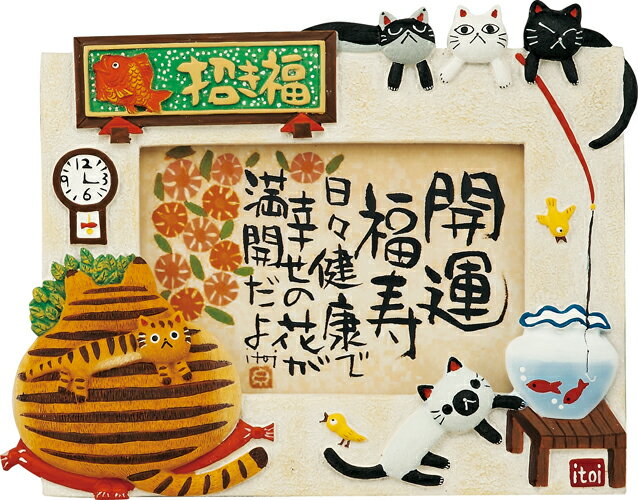 招き福
12
9 3
6
開運
福寿
日々健康で
幸せの花が
満開だよ
itoi